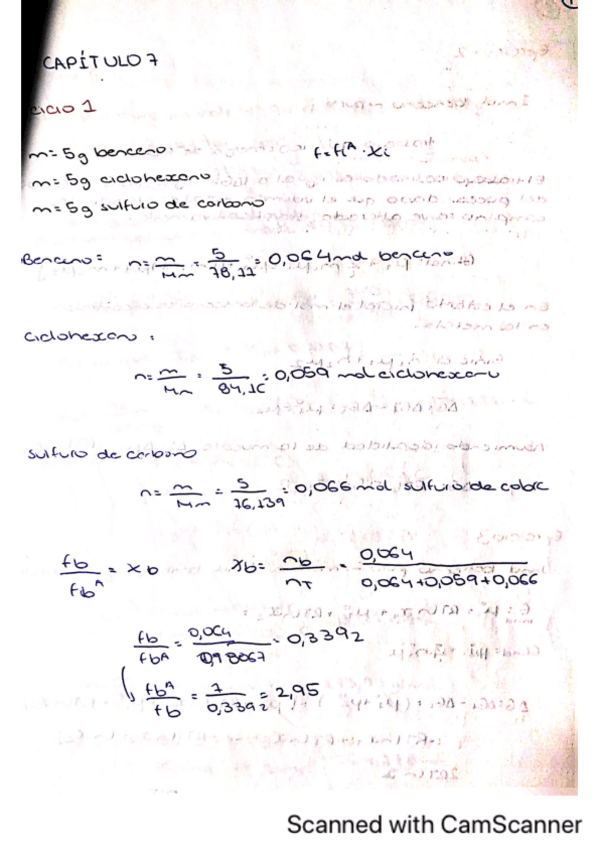 CAPÍTULO 7
m= 5g benceno.
f=fi^A · Xi
m= 5g ciclohexano
m= 5g sulfuro de carbono
Benceno: n= m/Mm = 5/78,11 = 0,064mol benceno
Ciclohexano:
n= m/Mm = 5/84,16 = 0,059 mol ciclohexano
Sulfuro de carbono
n= m/Mm = 5/76,139 = 0,066 mol sulfuro de
fb/fb^A = Xb Xb= nb/nT = 0,064/0,064+0,059+0,066
fb/fbA = 0,064/ = 0,3392
fb^A/fb = 1/0,3392 = 2,95
Scanned with CamScanner